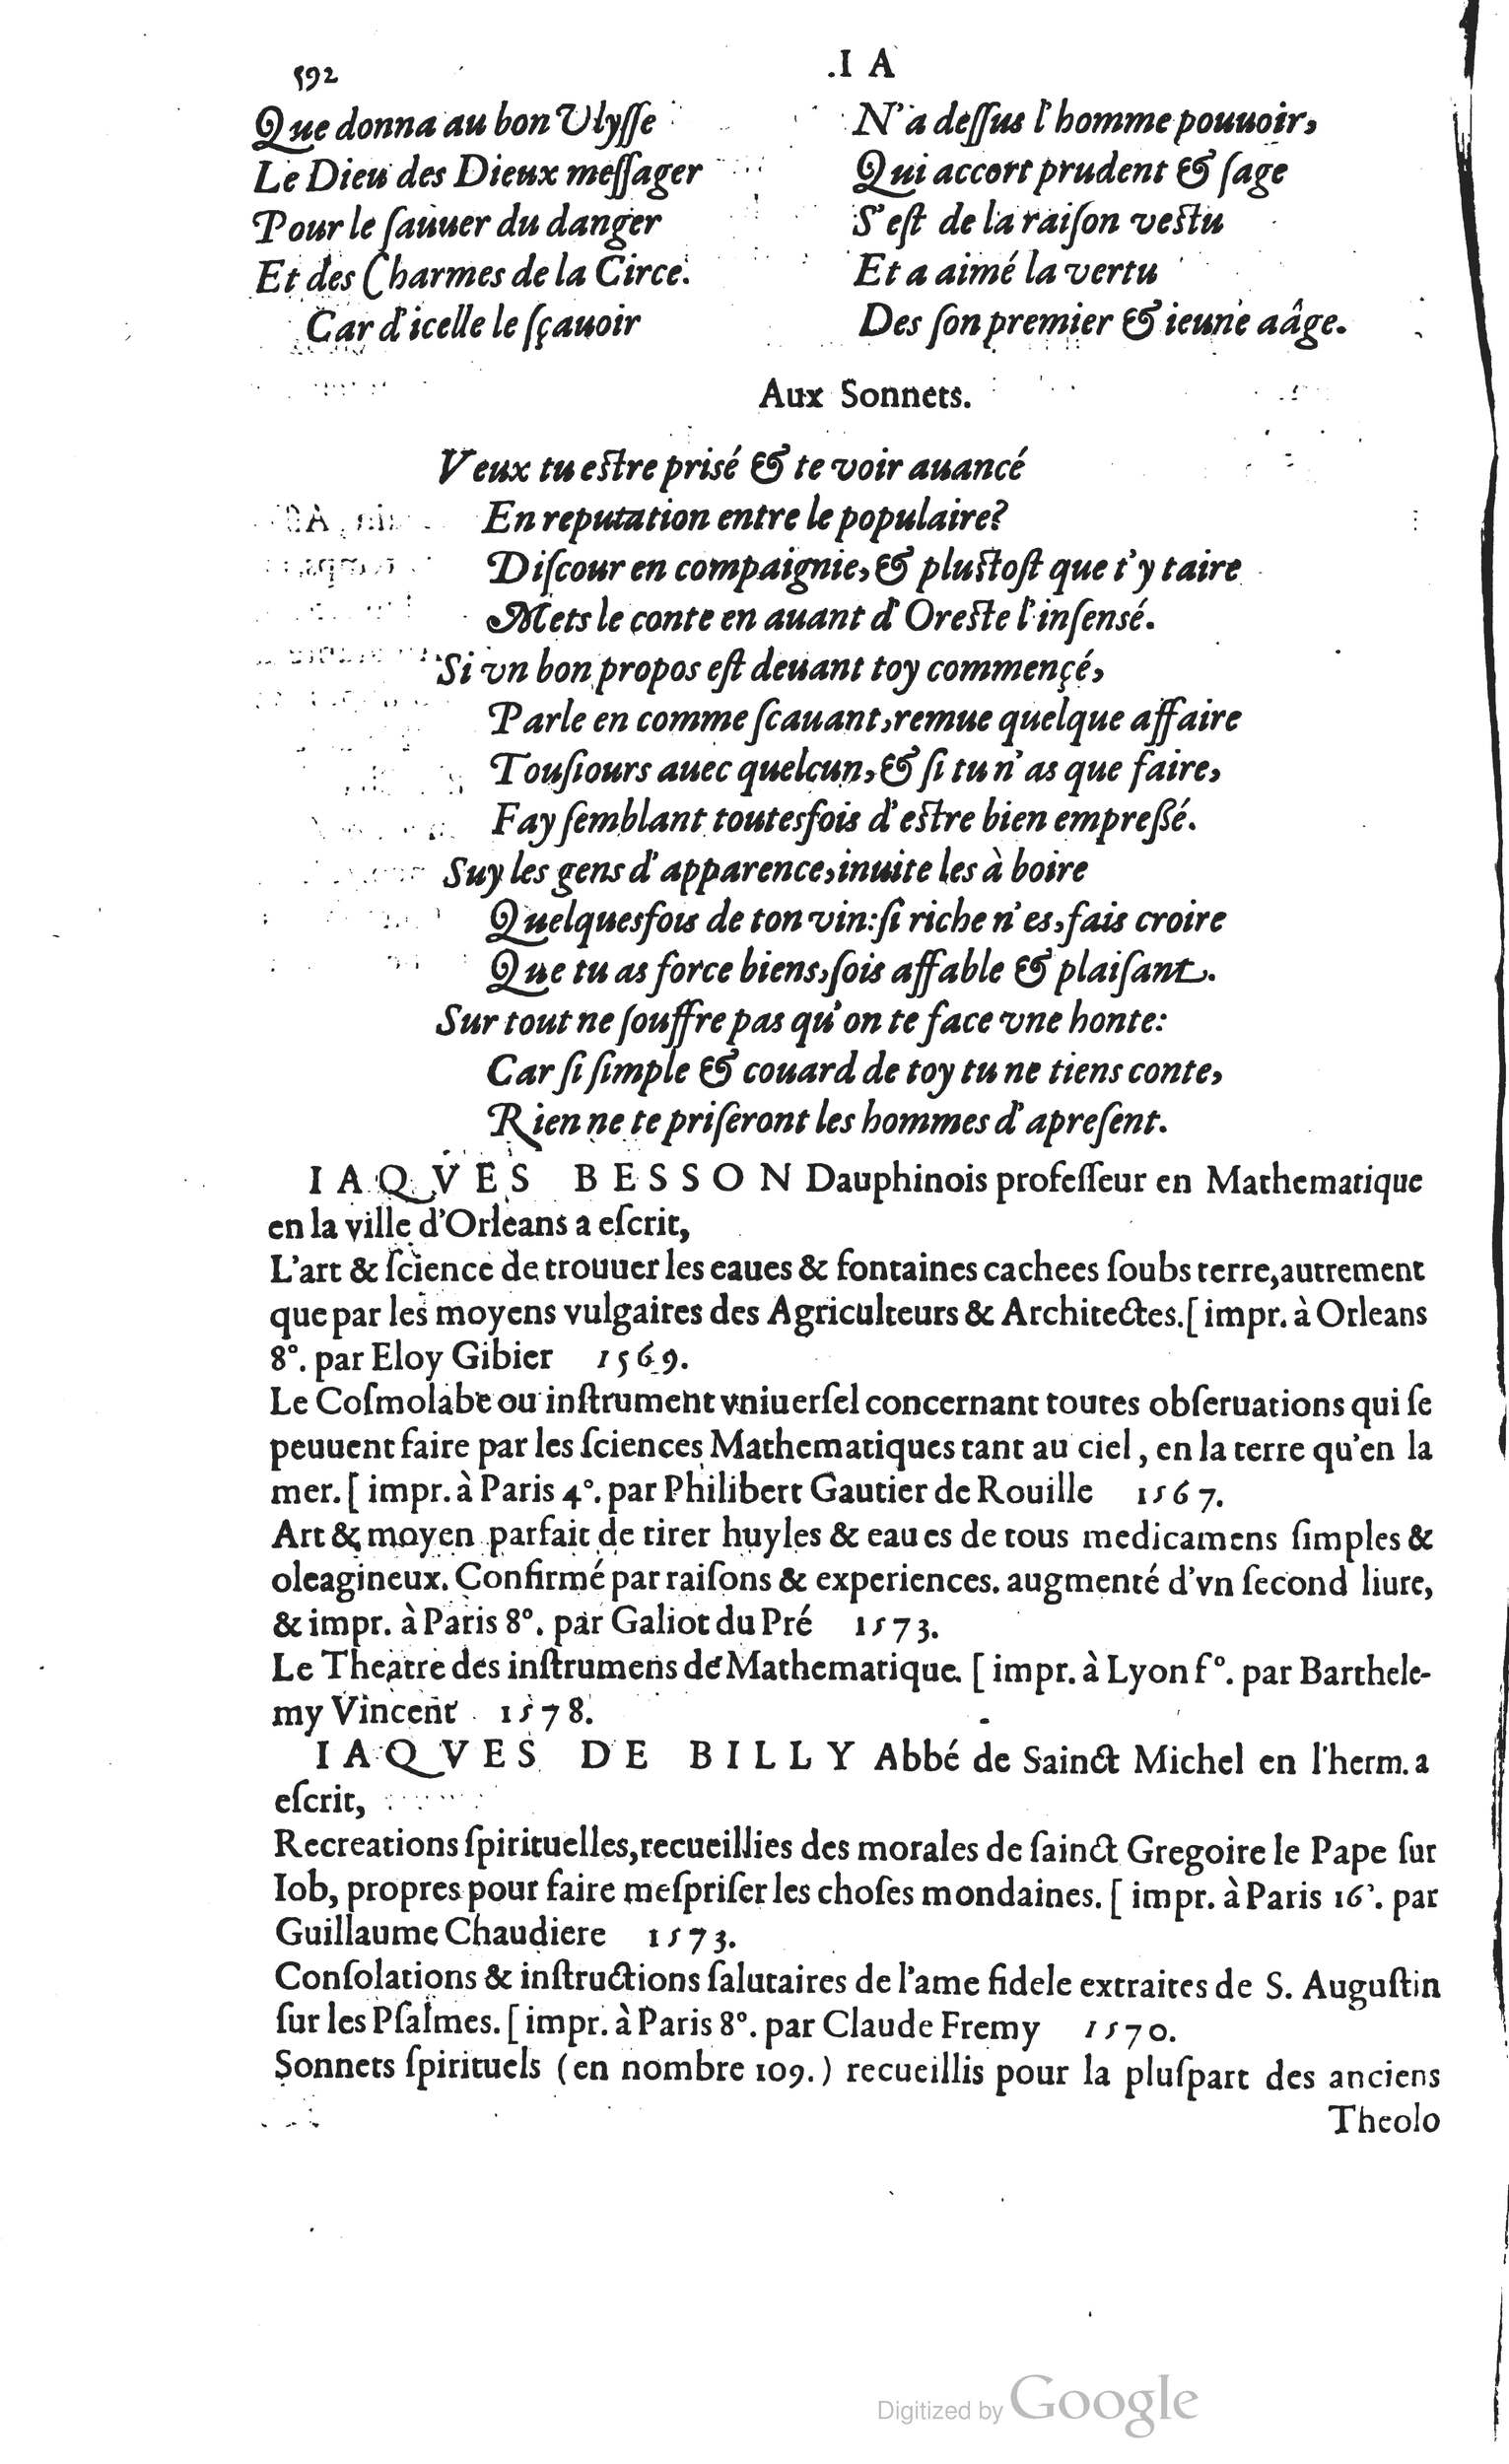 592
.I A
Que donna au bon Ulyſſe
Le Dieu des Dieux meſſager
Pour le ſauuer du danger
Et des Charmes de la Circe.
Car d'icelle le ſçauoir
N'a deſſus l'homme pouuoir,
Qui accort prudent & ſage
S'eſt de la raiſon veſtu
Et a aimé la vertu
Des ſon premier & ieune aâge.
Aux Sonnets.
Veux tu eſtre prisé & te voir auancé
En reputation entre le populaire?
Diſcour en compaignie, & pluſtoſt que t'y taire
Mets le conte en auant d'Oreſte l'inſensé.
Si vn bon propos eſt deuant toy commençé,
Parle en comme ſcauant, remue quelque affaire
Touſiours auec quelcun, & ſi tu n'as que faire,
Fay ſemblant toutesfois d'eſtre bien empreßé.
Suy les gens d'apparence, inuite les à boire
Quelquesfois de ton vin: ſi riche n'es, fais croire
Que tu as force biens, ſois affable & plaiſant.
Sur tout ne ſouffre pas qu'on te face vne honte:
Car ſi ſimple & couard de toy tu ne tiens conte,
Rien ne te priſeront les hommes d'apreſent.
IAQVES BESSON Dauphinois profeſſeur en Mathematique
en la ville d'Orleans a eſcrit,
L'art & ſcience de trouuer les eaues & fontaines cachees ſoubs terre, autrement
que par les moyens vulgaires des Agriculteurs & Architectes. [impr. à Orleans
8°. par Eloy Gibier 1569.
Le Coſmolabe ou inſtrument vniuerſel concernant toutes obſeruations qui ſe
peuuent faire par les ſciences Mathematiques tant au ciel, en la terre qu'en la
mer. [impr. à Paris 4°. par Philibert Gautier de Rouille 1567.
Art & moyen parfait de tirer huyles & eaues de tous medicamens ſimples &
oleagineux. Confirmé par raiſons & experiences. augmenté d'vn ſecond liure,
& impr. à Paris 8°. par Galiot du Pré 1573.
Le Theatre des inſtrumens de Mathematique. [impr. à Lyon f°. par Barthele-
my Vincent 1578.
IAQVES DE BILLY Abbé de Sainct Michel en l'herm. a
eſcrit,
Recreations ſpirituelles, recueillies des morales de ſainct Gregoire le Pape ſur
Iob, propres pour faire meſpriſer les choſes mondaines. [impr. à Paris 16°. par
Guillaume Chaudiere 1573.
Conſolations & inſtructions ſalutaires de l'ame fidele extraites de S. Auguſtin
ſur les Pſalmes. [impr. à Paris 8°. par Claude Fremy 1570.
Sonnets ſpirituels (en nombre 109.) recueillis pour la pluſpart des anciens
Theolo
Digitized by Google